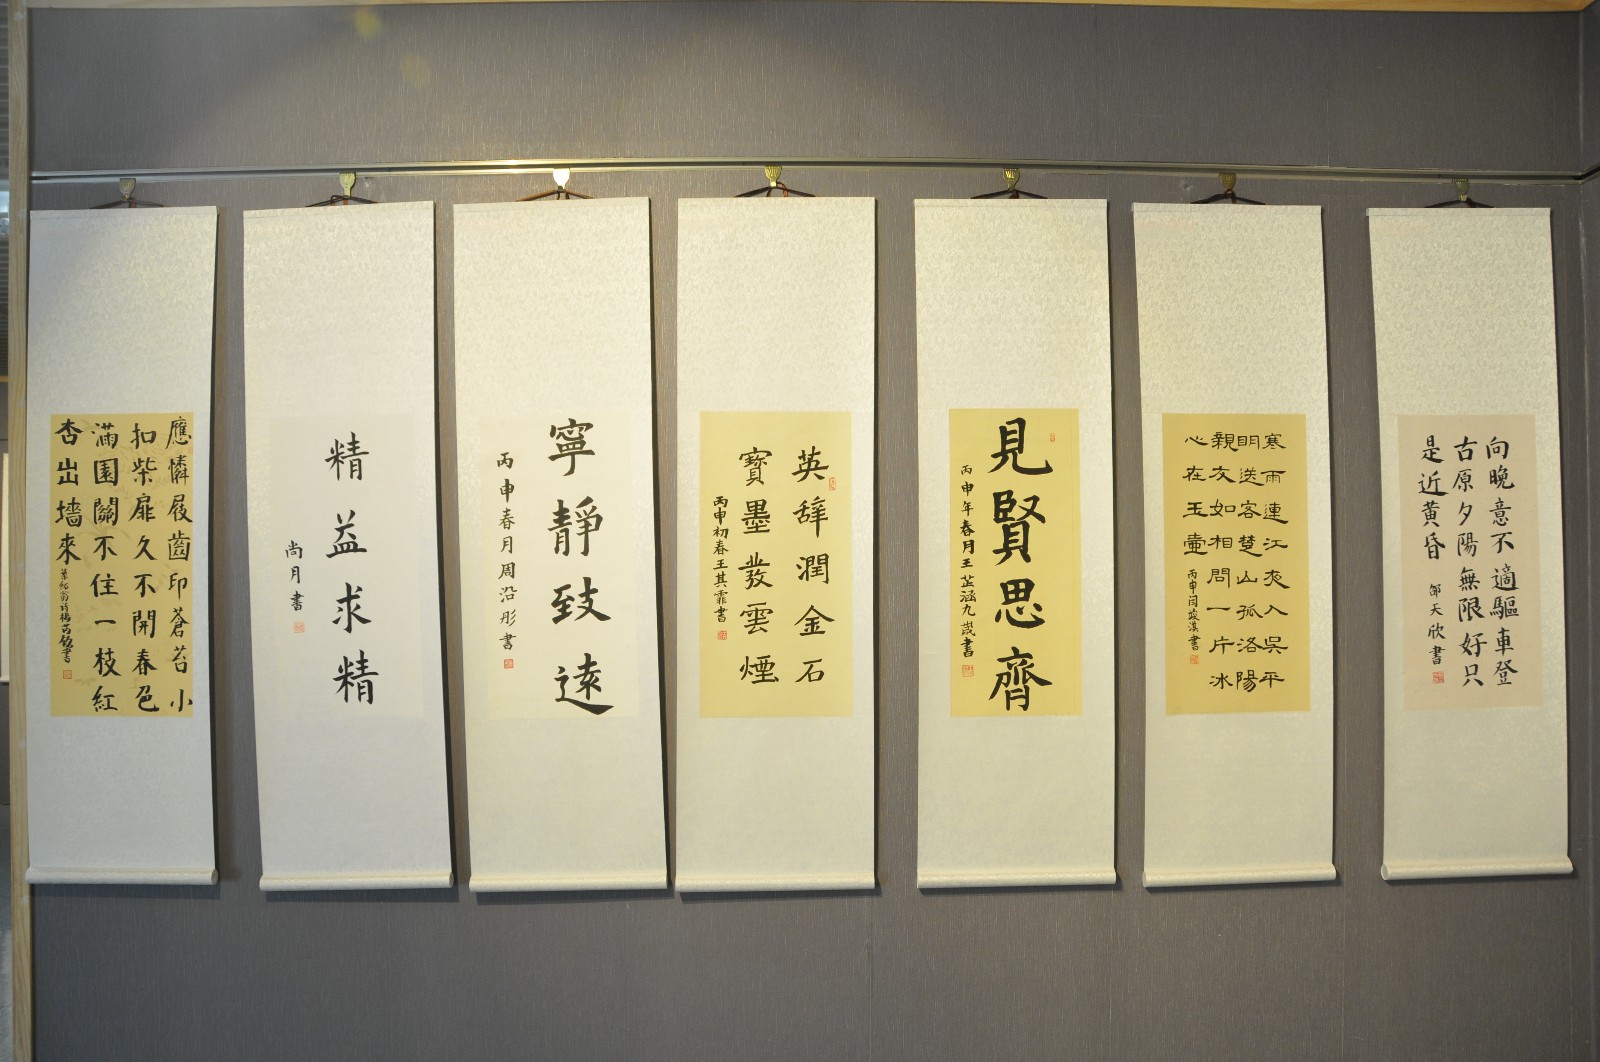 應憐屐齒印蒼苔小
扣柴扉久不開春色
滿園關不住一枝紅
杏出墻來
精益求精
尚月書
寧靜致遠
丙申春月周沿彤書
英辞潤金石
寶墨發雲煙
丙申初春王其霏書
見賢思齊
丙申年春月王芷涵九歲書
寒雨連江夜入吳平
明送客楚山孤洛陽
親友如相問一片冰
心在玉壺
向晚意不適驅車登
古原夕陽無限好只
是近黄昏
邹天欣書